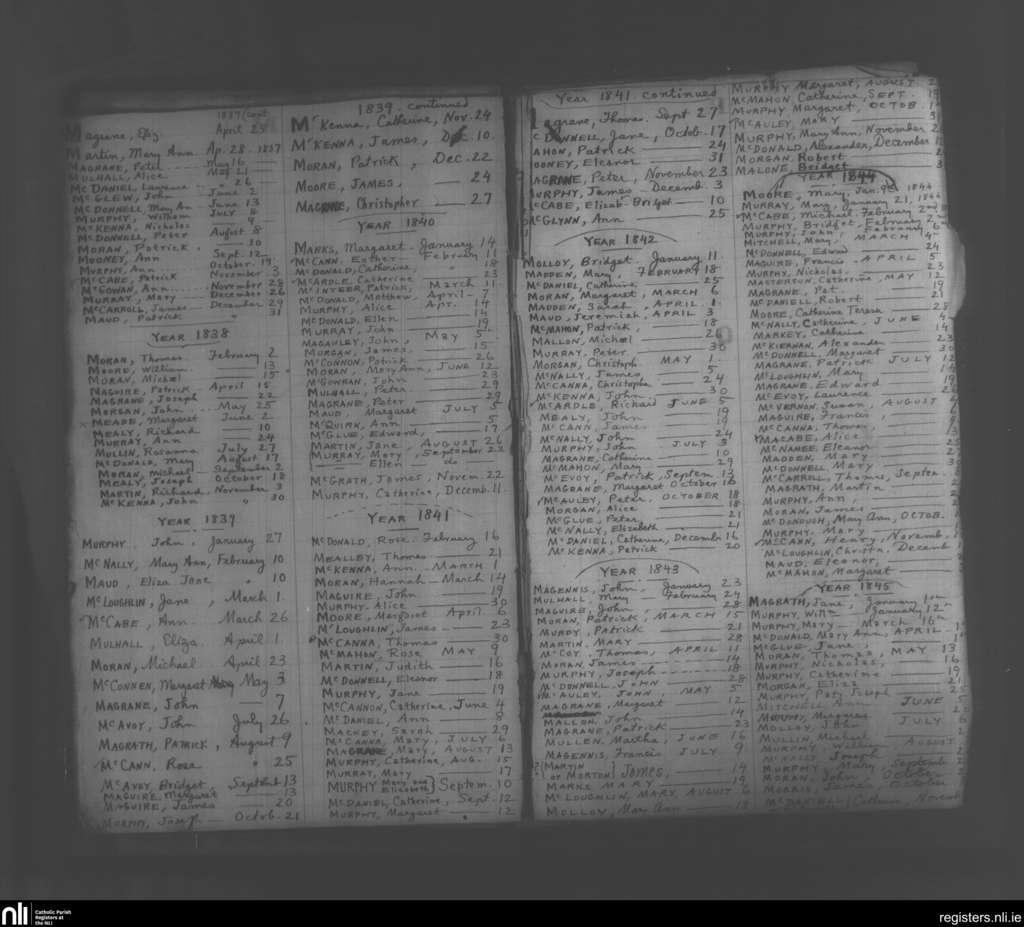 1837 (cont.
Magrane, Eliz. April 25
Martin, Mary Ann. Ap. 28. 1837
MAGRANE, Peter — May 16
MULHALL, Alice — May 21
Mc DANIEL, Laurence — " 26
Mc GLEW, John — June 2
Mc DONNELL, Mary An — June 13
MURPHY, William — JULY 8
Mc KENNA, Nicholas — " 9
Mc DONNELL, Peter August 8
MORAN, Patrick, . 20
MOONEY, Ann — Sept. 12
MURPHY, Ann — October. 19
Mc CABE, Patrick November 3
McGOWAN, Ann — November 28
MURRAY, Mary — December 26
McCARROLL, James — December 29
MAUD, Patrick " 31
YEAR 1838
MORAN, Thomas — February 2
MOORE, William — 13
MORAN, Michæl — 15
MAGUIRE, Patrick, April 15
MAGRANE, Joseph — 22
MORGAN, John .. May 25
MEADE, Margaret June 2
MEALY, Richard — 10
MURRAY, Ann — 24
MULLIN, Rosanna July 27
McDONALD, Mary August 17
MORAN, Michael — September 2
MEALY, Joseph October 18
MARTIN, Richard. November 3
McKENNA, John " 30
YEAR 1839
MURPHY John, January 27
McNALLY, Mary Ann, February 10
MAUD, Eliza Jane " 10
McLOUGHLIN, Jane, March 1.
McCABE, Ann. March 26
MULHALL, Eliza. April 1.
MORAN, Michael April 23
McCONNEN, Margaret May 3
MAGRANE, John — 7
McAVOY, John July 26
MAGRATH, PATRICK, August 9
McCANN, Rosa " 25
McAVOY, Bridget Septembr 13
MAGUIRE, Margaret — 13
MAGUIRE, James — 20
MURPHY, Joseph — Octob. 21
1839 - continued
McKenna, Catherine, Nov. 24
McKENNA, James, Dec. 10.
MORAN, Patrick, Dec. 22
MOORE, JAMES, — 24
MAGRANE, Christopher — 27
YEAR 1840
MANKS, Margaret. January 14
McCANN, Esther — February 11
McDONALD, Catherine, " 18
McARDLE, Catherine — 23
McINTEER, Patrick, March 11
McDONALD, Matthew. April - 7
MURPHY, Alice — April. 14
McDONALD, Ellen — 14
MURRAY, John — 19
MAGAHLEY, John, May 5
MORGAN, James, — 15
McCONNON, Patrick — 26
MORAN, Mary Ann, JUNE 12
McGOWRAN, John — 23
MULHALL, Peter — 29
MAGRANE, Peter — 29
MAUD, Margaret JULY 5
McQUIRK, Ann — 5
McGLUE, Edward, — 17
MARTIN, Jane, AUGUST 26
MURRAY, Mary, September 22
— Ellen — do —
McGRATH, James, Novem. 22
MURPHY, Catherine, Decemb. 11.
YEAR 1841
McDONALD, Rose. February 16
MEALLEY, Thomas — 21
McKENNA, Ann. — MARCH 1
MORAN, Hannah — March 14
MAGUIRE, John — 19
MURPHY, Alice — 30
MOORE, Margaret April. 6
McLOUGHLIN, James — 23
McCANNA, Thomas — 30
McMAHON, Rose MAY 9
MARTIN, Judith — 16
McDONNELL, Eleanor — 18
MURPHY, Jane — 19
McCANNON, Catherine, June 4
McDANIEL, Ann — 8
MACKEY, Sarah — 29
McCANNA, Mary, JULY 6
MAGRANE, Mary, AUGUST 13
MURPHY, Catherine, Aug. 15
MURRAY, Mary — 17
MURPHY Mary and Elizabeth } Septem. 10
McDANIEL, Catherine, Sept. 12
MURPHY, Margaret — 12
Year 1841. continued
agrane, Thomas. Sept 27
McDONNELL, Jane, Octob. 17
AHON, Patrick — 24
OONEY, Eleanor — 31
AGRANE, Peter, November 23
MURPHY, James — Decemb. 3
McCABE, Elizab. Bridget — 10
McGLYNN, Ann — 25
YEAR 1842
MOLLOY, Bridget. January 11
MADDEN, Mary, FEBRUARY 18
McDANIEL, Catherine 25
MORAN, Margaret, MARCH 6
MADDEN, Sarah, APRIL 1.
MAUD, Jeremiah, APRIL 3
McMAHON, Patrick, — 18
MALLON, Michæl — 26
MURRAY, Peter — 30
MORGAN, Christoph. MAY 1.
McNALLY, James, — 5
McCANNA, Christopha — 24
McKENNA, John — 30
McARDLE, Richard JUNE 5
MEALY, John — 19
McCANN, James — 19
McNALLY, John — 24
MURPHY, John — JULY 3
MAGRANE, Catherine — 10
McMAHON, Mary — 29
McEVOY, Patrick, Septem. 13
MAGRANE, Margaret October 16
McAULEY, Peter, OCTOBER 18
MORGAN, Alice — 18
McGLUE, Peter — 21
McNALLY, Elizabeth — 21
McDANIEL, Catherine, Decemb. 16
McKENNA, Patrick — 20
YEAR 1843
MAGENNIS, John, January 23
MULHALL, Mary February 24
MAGUIRE, John, — 28
MORAN, Patrick, MARCH 15
MURDY, Patrick — 21
MARTIN, MARY — 28
McCOY, Thomas, APRIL 11
MORAN, James — 14
MURPHY, Joseph — 18
McDONNELL, JOHN — 28
McAULEY, JOHN, MAY 5
MAGRANE, Margaret 12
MALLON, John — 14
MAGRANE, Patrick — 23
MULLEN, Martha, JUNE 16
MAGENNIS, Francis JULY 9
MARTIN
or MORTON } James, — 14
MARKS MARY — 19
McLOUGHLIN, MARY, AUGUST 6
MOLLOY, Mary Ann — 18
MURPHY Margaret, AUGUST 2
McMAHON, Catherine, SEPT. 19
MURPHY Margaret, OCTOB. 1
McAULEY, MARY — 3
MURPHY, Mary Ann, November 2
McDONALD, Alexander, December
MORGAN, Robert
MALONE, Bridget — 3
YEAR 1844
MOORE, Mary, Jan. 9th 1844
MURRAY, Mary, January 21, 1844
McCABE, Michael. February 2nd
MURPHY, Bridget, February 2nd
MURPHY, John, February 6th
MITCHELL, Mary, MARCH 4
McDONNELL, Edwd — 24
MAGUIRE, Francis, APRIL 5
MURPHY, Nicholas, — 23
MASTERSON, Catherine, MAY 12
MAGRANE, Pat. — 19
McDANIELL, Robert — 21
MOORE, Catherine Teresa — 28
McNALLY, Catherine, JUNE 4
MARKEY, Catherine — 14
McKIERNAN, Alexander — 23
McDONNELL, Margaret — 30
MAGRANE, Patrick JULY 12
McLOUGHLIN, Mary — 14
MAGRANE, Edward
McEVOY, Laurence
McVERNON, Susan, AUGUST
MAGUIRE, Francis,
McCANNA, Thomas,
MACABE, Alice
McNAMEE, Eleanor
MADDEN, Mary
McDONNELL, MARY
McCARROLL, Thomas, Septem
MAGRATH, Martin
MURPHY, Ann,
MORAN, James
McDONOUGH, Mary Ann, OCTOB.
MURPHY, Mary
McCANN, Henry, Novemb.
McLOUGHLIN, Christn. Decemb
MAUD, Eleanor,
McMAHON, Margaret
YEAR 1845
MAGRATH, Jane, January 1st
MURPHY, Willm January 12th
MURPHY, Mary — March 16th
McDONALD, Mary Ann, APRIL
McGLUE, Jane,
MORAN, Thomas, MAY 13
MURPHY, Nicholas, — 16
MURPHY, Catherine — 19
MORGAN, Eliza — 21
MURPHY, Patk Joseph — 25
MITCHELL, Ann JUNE
MURPHY, Margaret
MOLLOY, John JULY 6
MULLIN, Michael
MURPHY, Willm AUGUST
McNALLY Joseph
MURPHY, Mary, Septemb
MORAN, John, October
MORRIS, James, October
McDANIELL, Catherine, Novemb
nli
Catholic Parish
Registers at
the NLI
registers.nli.ie